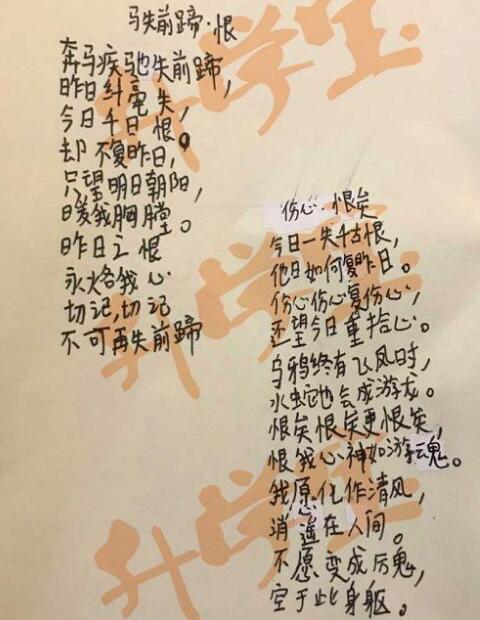 马失前蹄·恨
奔马疾驰失前蹄，
昨日纤毫失，
今日千日恨。
却不复昨日，
只望明日朝阳，
暖我胸膛。
昨日之恨
永烙我心
切记，切记
不可再失前蹄
伤心·恨矣
今日一失千古恨，
他日如何复昨日。
伤心伤心复伤心，
还望今日重拾心。
乌鸦终有飞凤时，
水蛇也会成游龙。
恨矣恨矣更恨矣，
恨我心神如游魂。
我愿化作清风，
消遥在人间。
不愿变成厉鬼，
空于此身躯。
升学宝
升学宝
升学宝